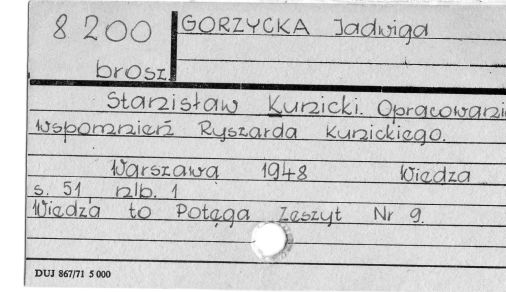 8200 GORZYCKA Jadwiga
brosz.
Stanisław Kunicki. Opracowanie
wspomnień Ryszarda Kunickiego.
Warszawa 1948 Wiedza
s. 51, nlb. 1
Wiedza to Potęga Zeszyt Nr 9.
DUJ 867/71 5 000